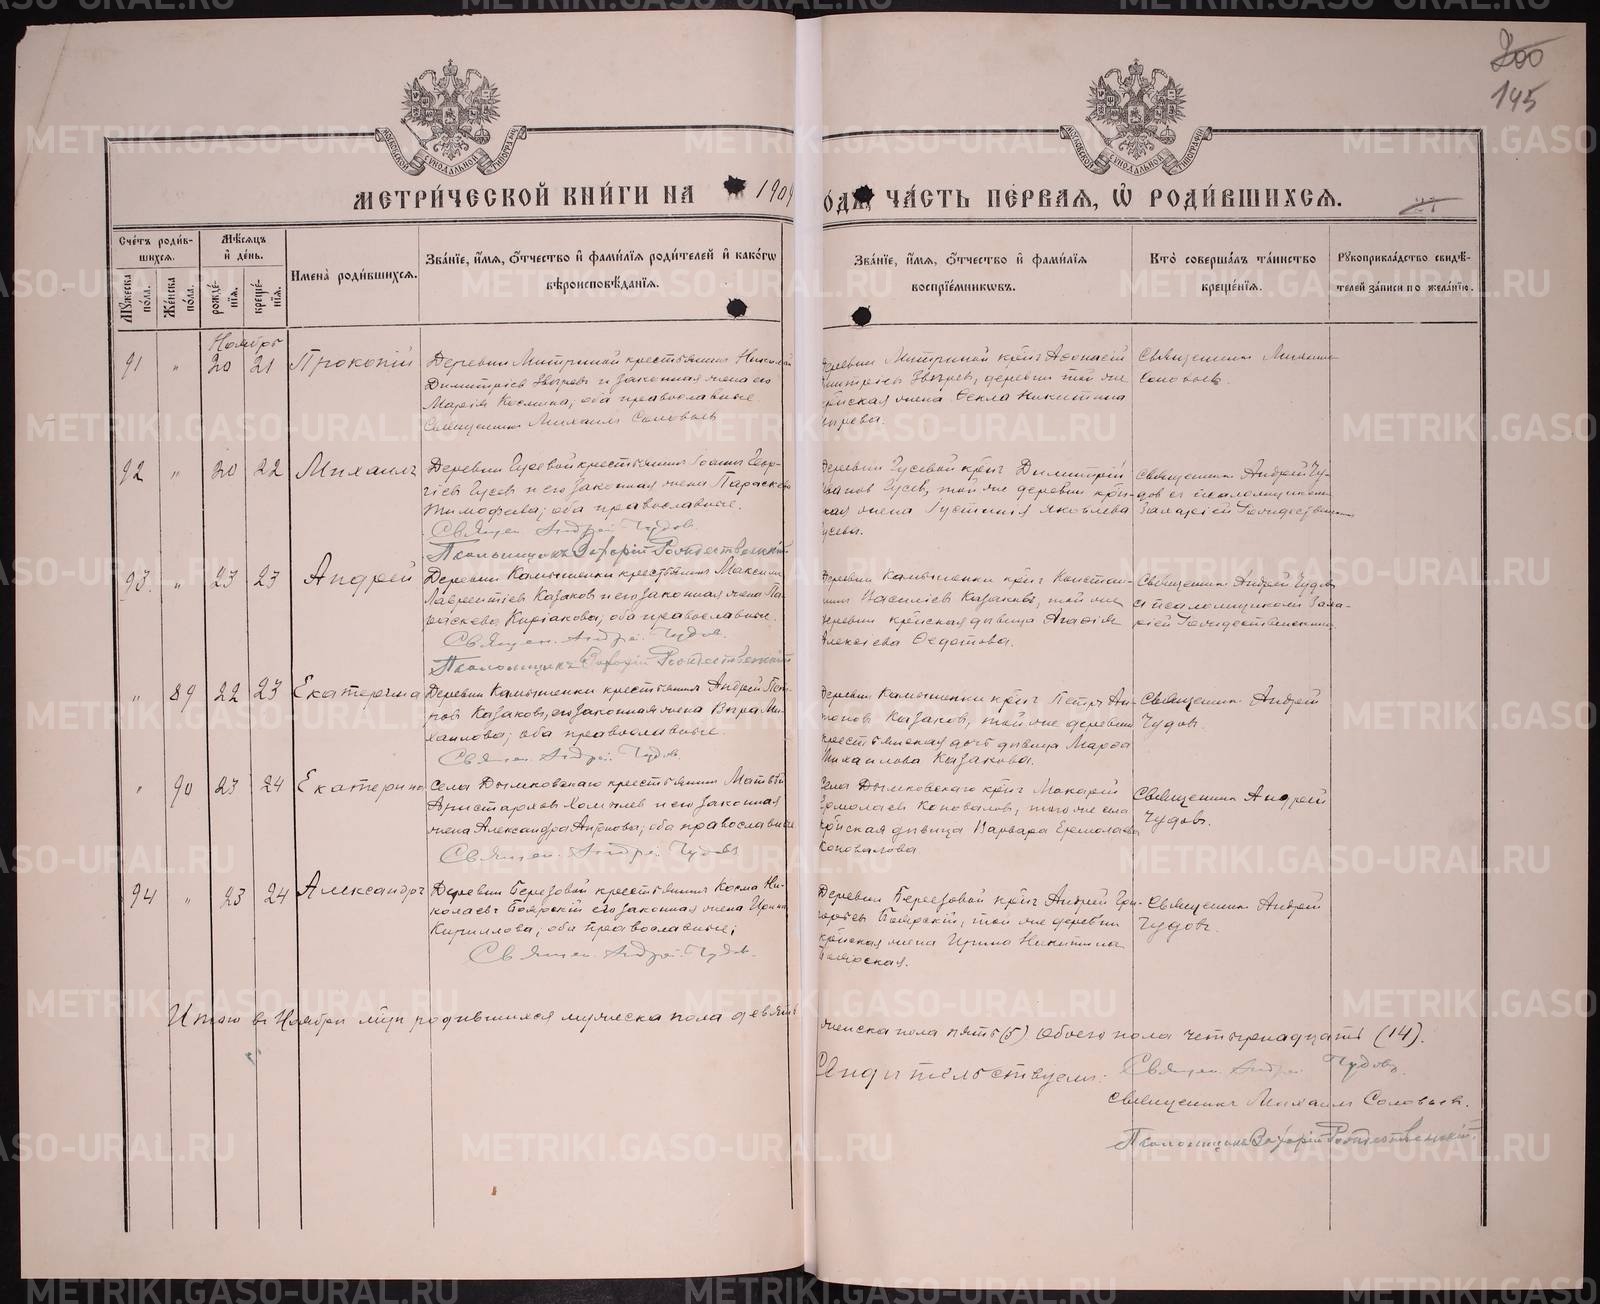 200
145
МОСКОВСКОЙ СИНОДАЛЬНОЙ ТИПОГРАФІИ
МОСКОВСКОЙ СИНОДАЛЬНОЙ ТИПОГРАФІИ
МЕТРИ́ЧЕСКОЙ КНИ́ГИ НА 1909
ЧА́СТЬ ПЕ́РВАЯ, Ѡ РОДИ́ВШИХСЯ.
Сче́тъ роди́в-
шихся.
Му́жеска по́ла.
Же́нска по́ла.
Мѣ́сяцъ
и҆ де́нь.
рожде́-
нїя.
креще́-
нїя.
И҆мена̀ роди́вшихся.
Зва́нїе, и҆́мя, ѻ҆́тчество и҆ фами́лїя роди́телей и҆ како́гѡ
вѣроисповѣ́данїя.
Зва́нїе, и҆́мя, ѻ҆́тчество и҆ фами́лїя
воспрїе́мникѡвъ.
Кто̀ соверша́лъ та́инство
креще́нїя.
Рꙋкоприкла́дство свидѣ́-
телей за́писи по жела́нїю.
Ноябрь
91 " 20 21 Прокопій
Деревни Митриной крестьянинъ Николай
Димитріевъ Звыревъ и законная жена его
Марія Космина, оба православные.
Священникъ Михаилъ Соловьевъ
Деревни Митриной крест. Афонасій
Димитріевъ Звыревъ, деревни той же
жена Ѳекла Никитина
Звырева.
Священникъ Михаилъ
Соловьевъ.
92 " 20 22 Михаилъ
Деревни Гусевой крестьянинъ Іоаннъ Геор-
гіевъ Гусевъ и его законная жена Параскева
Тимофеева; оба православные.
Священ. Андрей Чудовъ.
Псаломщикъ Захарій Рождественскій
Деревни Гусевой крест. Димитрій
Ивановъ Гусевъ, той же деревни крестьян-
ская жена Іустинія Яковлева
Гусева.
Священникъ Андрей Чу-
довъ съ псаломщикомъ
Захаріей Рождественскимъ
93. " 23 23 Андрей
Деревни Камышенки крестьянинъ Максимъ
Лаврентіевъ Казаковъ и его законная жена Па-
раскева Киріакова; оба православные.
Священ. Андрей Чудовъ.
Псаломщикъ Захарій Рождественскій
Деревни Камышенки крест. Констан-
тинъ Василіевъ Казаковъ, той же
деревни дѣвица Агафія
Алексіева Ѳедотова.
Священникъ Андрей Чудовъ
съ псаломщикомъ Заха-
ріей Рождественскимъ.
" 89 22 23 Екатерина
Деревни Камышенки крестьянинъ Андрей Пет-
ровъ Казаковъ, его законная жена Вѣра Ми-
хаилова; оба православные.
Священ. Андрей Чудовъ.
Деревни Камышенки крест. Петръ Ан-
тоновъ Казаковъ, той же деревни
крестьянская дочь дѣвица Марѳа
Михаилова Казакова.
Священникъ Андрей
Чудовъ.
" 90 23 24 Екатерина
Села Дымковскаго крестьянинъ Матвѣй
Аристарховъ Хомылевъ и его законная
жена Александра Антонова; оба православные
Священ. Андрей Чудовъ
Села Дымковскаго крест. Макарій
Ермолаевъ Коноваловъ, того же села
дѣвица Варвара Ермолаева
Коновалова.
Священникъ Андрей
Чудовъ.
94 " 23 24 Александръ
Деревни Березовой крестьянинъ Косма Ни-
колаевъ Боярскій его законная жена Ирина
Кириллова; оба православные;
Священ. Андрей Чудовъ.
Деревни Березовой крест. Андрей Гри-
горьевъ Боярскій, той же деревни
жена Ирина Никитина
Боярская.
Священникъ Андрей
Чудовъ.
Итого въ Ноябрѣ м-цѣ родившихся мужеска пола девять
женска пола пять (5) Обоего пола четырнадцать (14).
Свидѣтельствуемъ:
Священ. Андрей Чудовъ.
Священникъ Михаилъ Соловьевъ.
Псаломщикъ Захарій Рождественскій.
METRIKI.GASO-URAL.RU